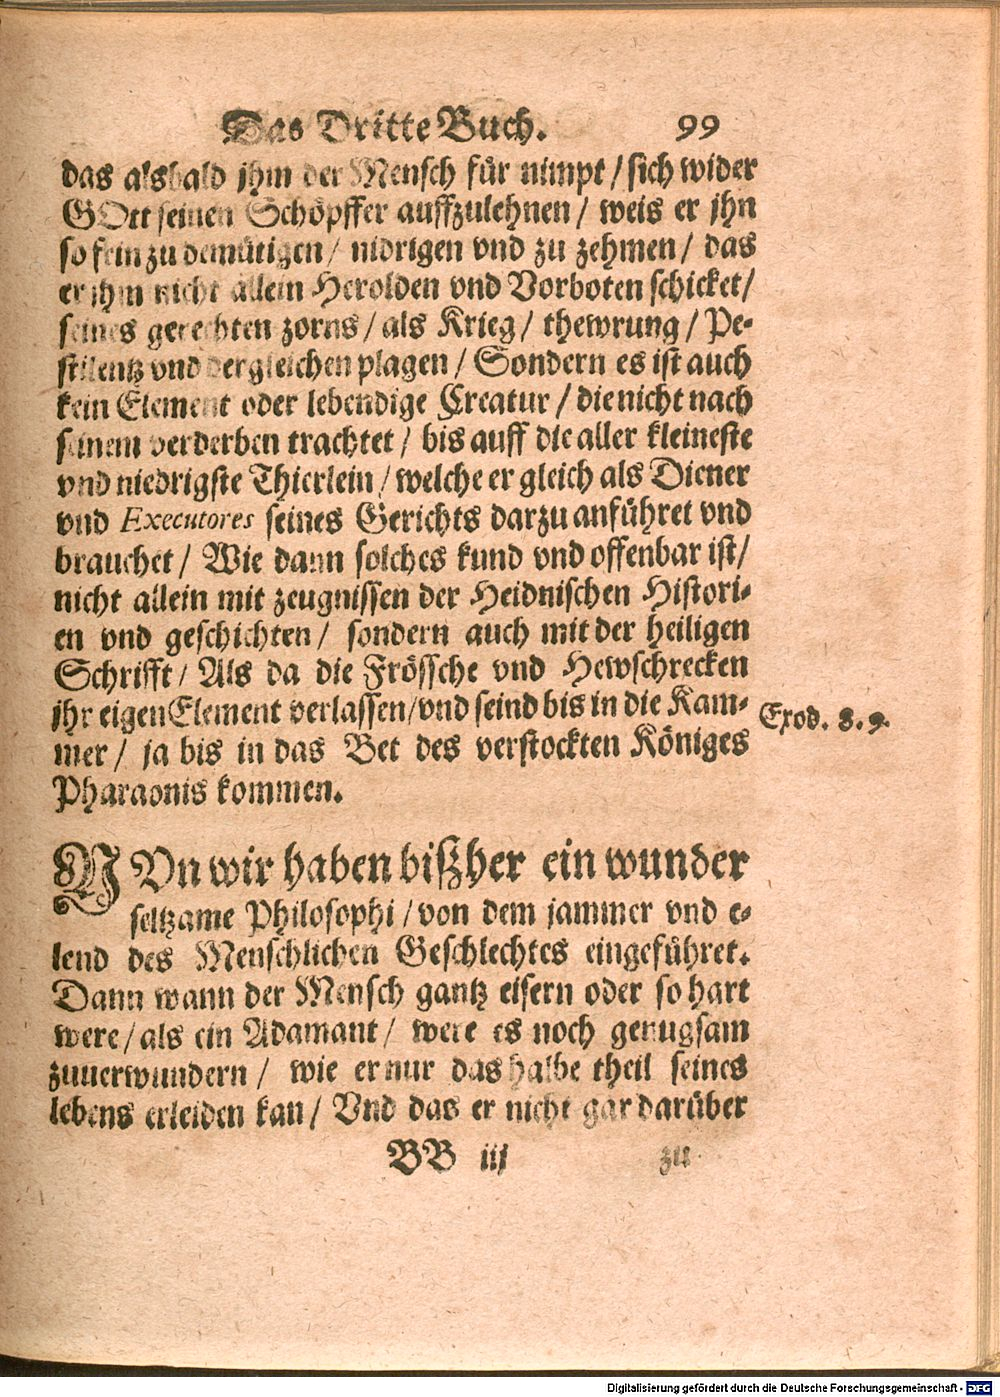 Das Dritte Buch. 99
das alsbald jhm der Mensch für nimpt / sich wider
GOtt seinen Schöpffer auffzulehnen / weis er jhn
so fein zu demütigen / nidrigen vnd zu zehmen / das
er jhm nicht allein Herolden vnd Vorboten schicket /
seines gerechten zorns / als Krieg / thewrung / Pe-
stilentz vnd dergleichen plagen / Sondern es ist auch
kein Element oder lebendige Creatur / die nicht nach
seinem verderben trachtet / bis auff die aller kleineste
vnd niedrigste Thierlein / welche er gleich als Diener
vnd Executores seines Gerichts darzu anführet vnd
brauchet / Wie dann solches kund vnd offenbar ist /
nicht allein mit zeugnissen der Heidnischen Histori-
en vnd geschichten / sondern auch mit der heiligen
Schrifft / Als da die Frössche vnd Hewschrecken
jhr eigen Element verlassen / vnd seind bis in die Kam-
mer / ja bis in das Bet des verstockten Königes
Pharaonis kommen.
Exod. 8. 9.
NVn wir haben bißher ein wunder
seltzame Philosophi / von dem jammer vnd e-
lend des Menschlichen Geschlechtes eingeführet.
Dann wann der Mensch gantz eisern oder so hart
were / als ein Adamant / were es noch genugsam
zuuerwundern / wie er nur das halbe theil seines
lebens erleiden kan / Vnd das er nicht gar darüber
BB iij zu
Digitalisierung gefördert durch die Deutsche Forschungsgemeinschaft - DFG